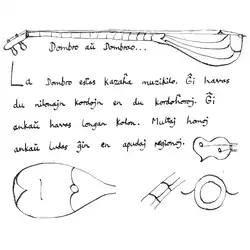 Dombro aŭ Dombrao...
La Dombro estas kazaĥa muzikilo. Ĝi havas
du nilonajn kordojn en du kordoĥoroj. Ĝi
ankaŭ havas longan kolon. Multaj homoj
ankaŭ ludas ĝin en apudaj regionoj.